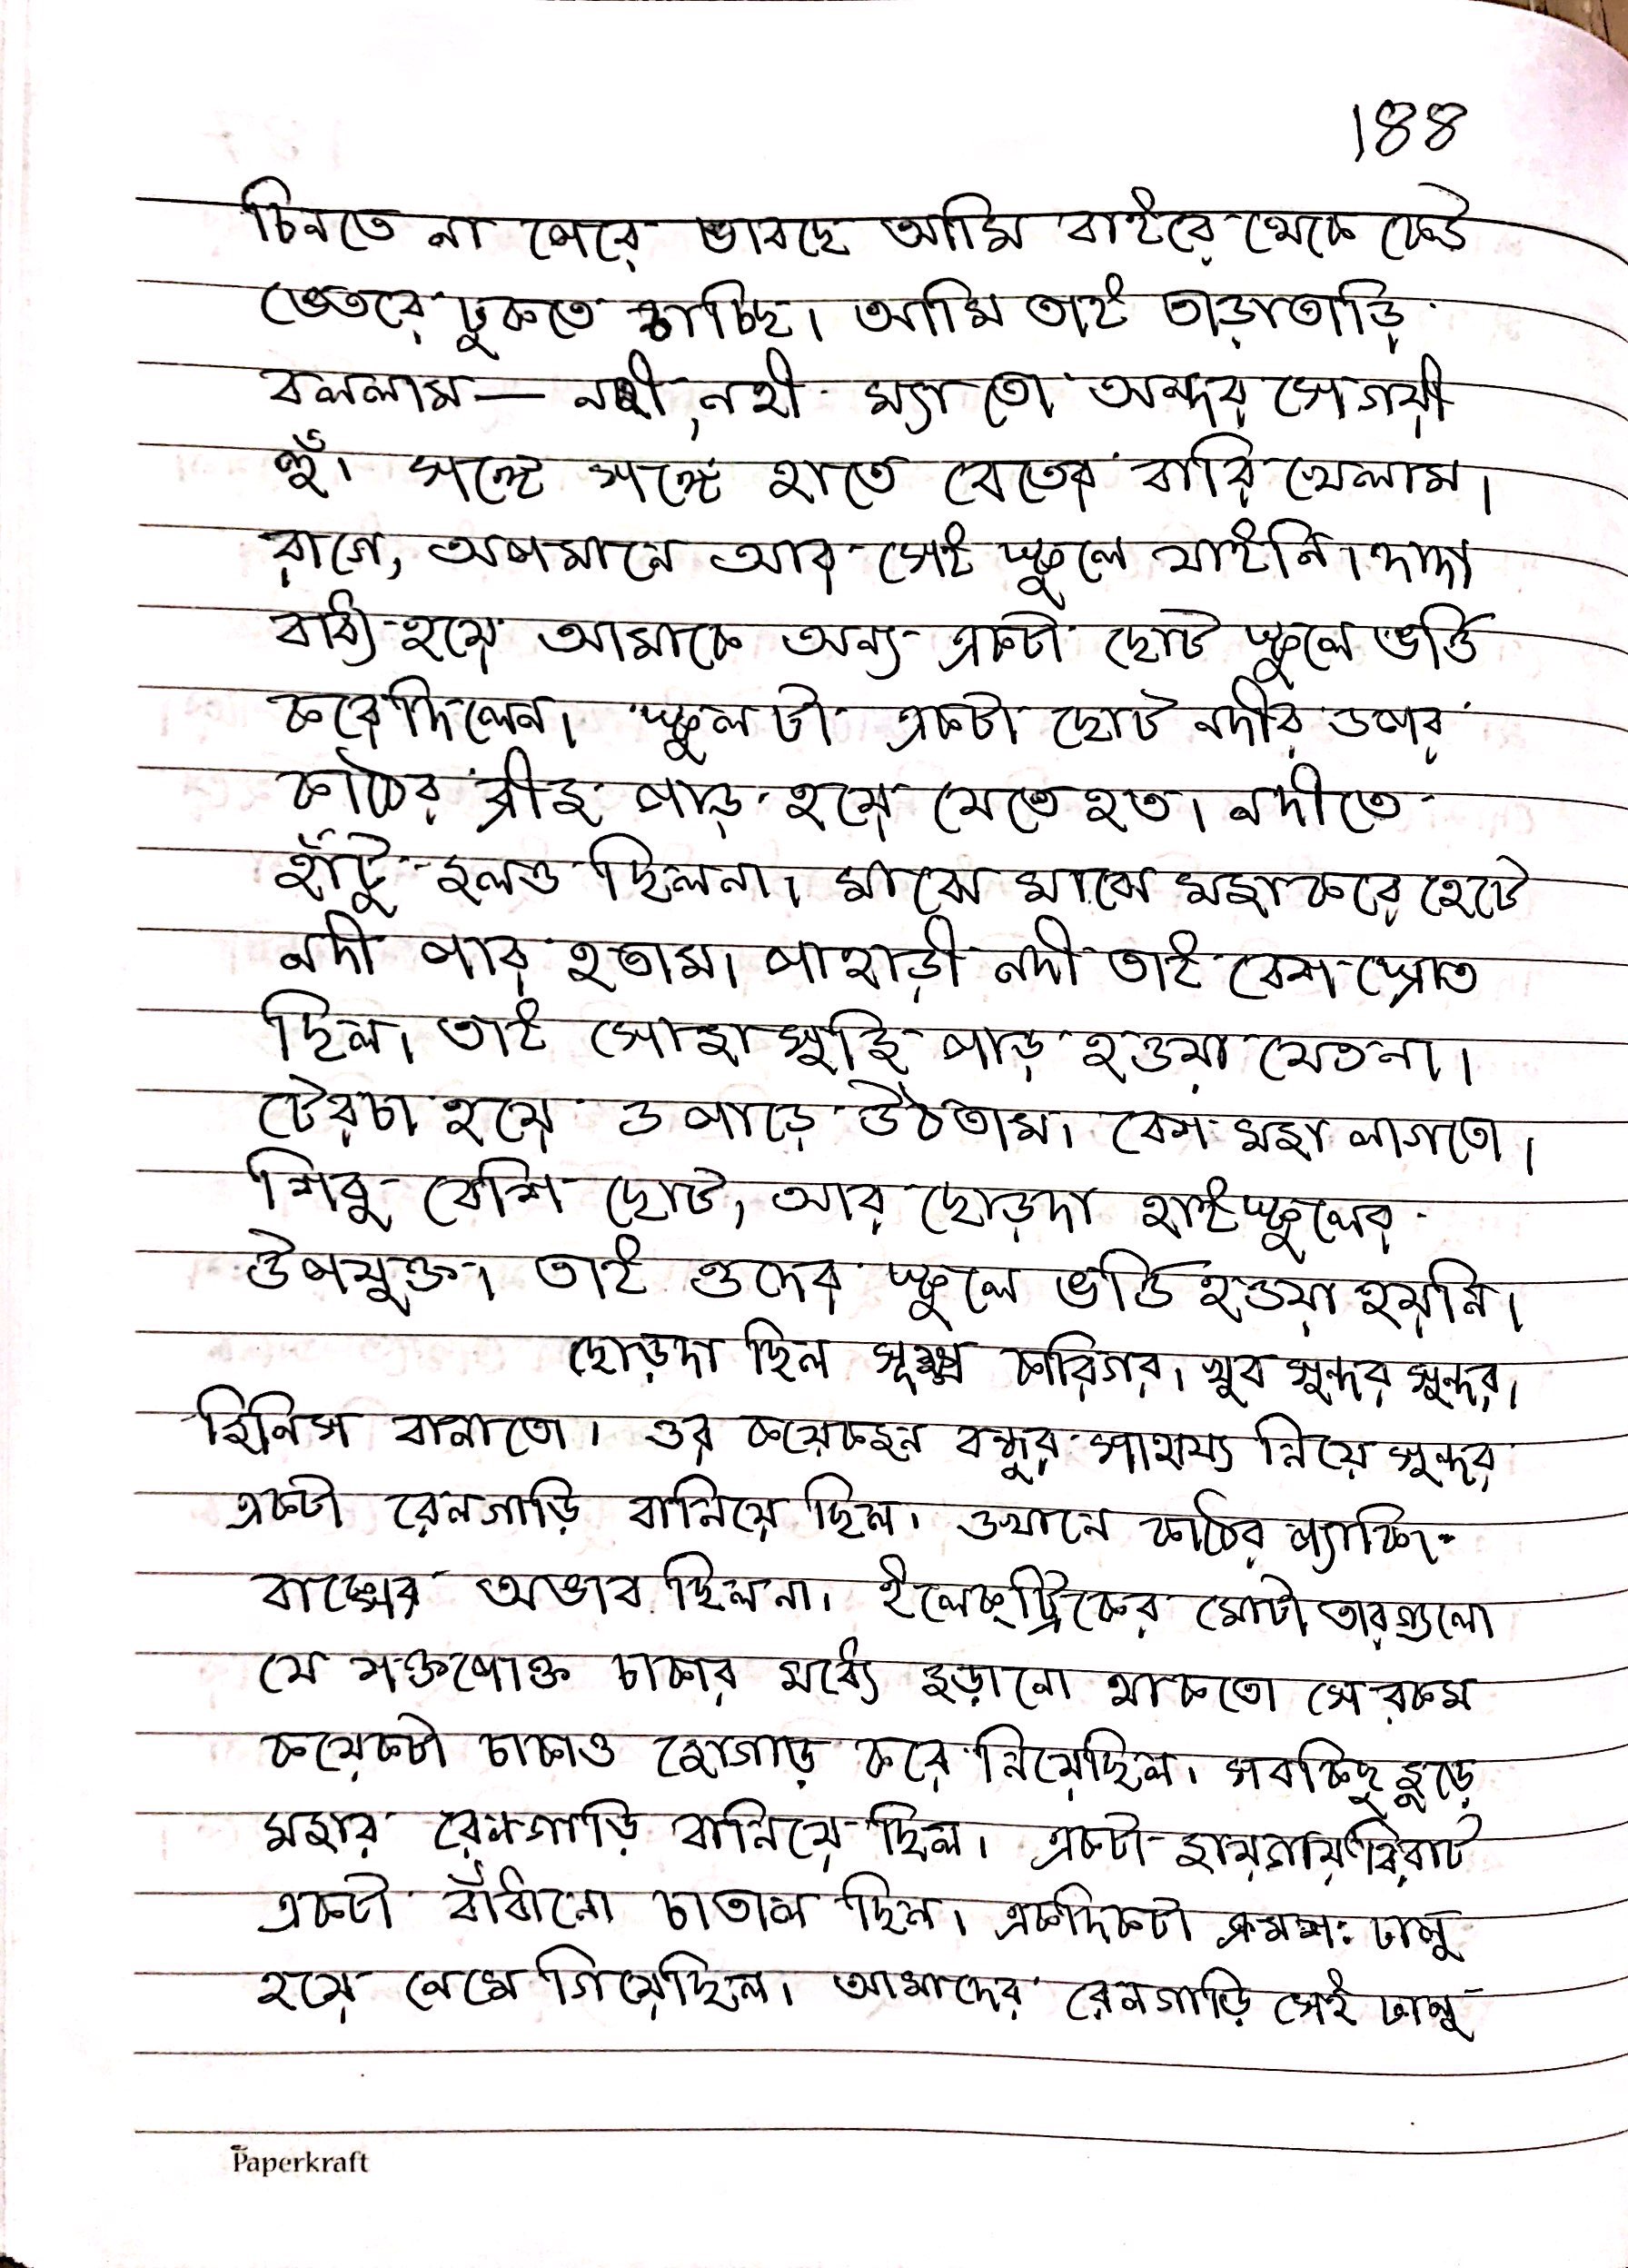 188
চিনতে না পেরে ভাবছে আমি বাইরে থেকে কেউ
ভেতরে ঢুকতে চাচ্ছি। আমি তাই তাড়াতাড়ি
বললাম— নহী, নহী ম্যা তো অন্দর সে গয়ী
হুঁ। সঙ্গে সঙ্গে হাতে বেতের বারি খেলাম।
রাগে, অপমানে আর সেই স্কুলে যাইনি। দাদা
বাধ্য হয়ে আমাকে অন্য একটা ছোট স্কুলে ভর্তি
করে দিলেন। স্কুলটা একটা ছোট নদীর ওপর
কাঠের ব্রীজ পাড় হয়ে যেতে হত। নদীতে
হাঁটু জলও ছিলনা। মাঝে মাঝে মজা করে হেটে
নদী পার হতাম। পাহাড়ী নদী তাই বেশ স্রোত
ছিল। তাই সোজাসুজি পাড় হওয়া যেতনা।
টেরচা হয়ে ওপাড়ে উঠতাম। বেশ মজা লাগতো।
শিবু বেশি ছোট, আর ছোড়দা হাইস্কুলের
উপযুক্ত। তাই ওদের স্কুলে ভর্তি হওয়া হয়নি।
ছোড়দা ছিল সূক্ষ্ম কারিগর। খুব সুন্দর সুন্দর।
জিনিস বানাতো। ওর কয়েকজন বন্ধুর সাহায্য নিয়ে সুন্দর
একটা রেলগাড়ি বানিয়ে ছিল। ওখানে কাঠের প্যাকিং
বাক্সের অভাব ছিলনা। ইলেক্ট্রিকের মোটা তারগুলো
যে শক্তপোক্ত চাকার মধ্যে জড়ানো থাকতো সেরকম
কয়েকটা চাকাও জোগাড় করে নিয়েছিল। সবকিছু জুড়ে
মজার রেলগাড়ি বানিয়ে ছিল। একটা জায়গায় বিরাট
একটা বাঁধানো চাতাল ছিল। একদিকটা ক্রমশঃ ঢালু
হয়ে নেমে গিয়েছিল। আমাদের রেলগাড়ি সেই ঢালু
Paperkraft